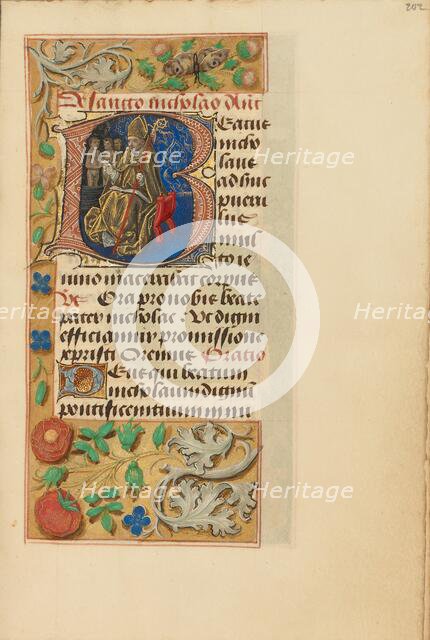 202
De sancto nicholao Ant
Beatus
nicho
laus
adhuc
puerulus
mul
to ie
iunio macerabat corpus
Vs Ora pro nobis beate
pater nicholae Vt digni
efficiamur promissione
xpristi Oremus Oratio
Deus qui beatum
nicholaum
pontificem tuum
Heritage
Heritage
Heritage
Heritage
Heritage
Heritage
Heritage
Heritage